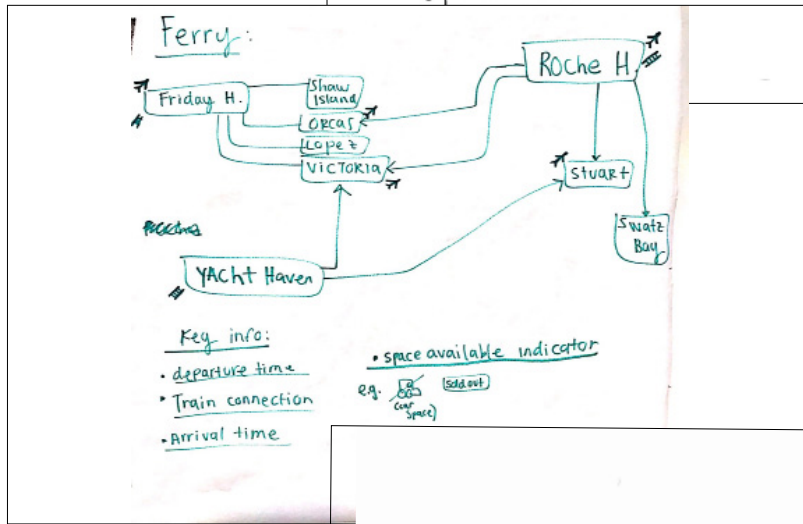 Ferry:
Roche H.
Friday H.
Shaw
Island
Orcas
Lopez
VICTORIA
Stuart
Swatz
Bay
YAcht Haven
Key info:
• departure time
• Train connection
• Arrival time
• space available indicator
e.g.
Sold out
space)